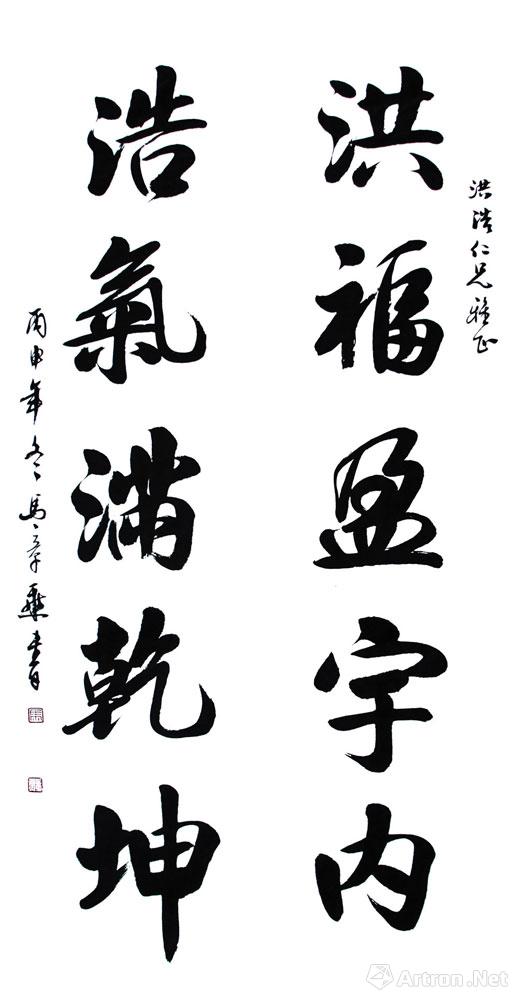 洪浩仁兄雅正
洪福盈宇内
浩氣滿乾坤
丙申年冬馬章乘書
Artron.Net